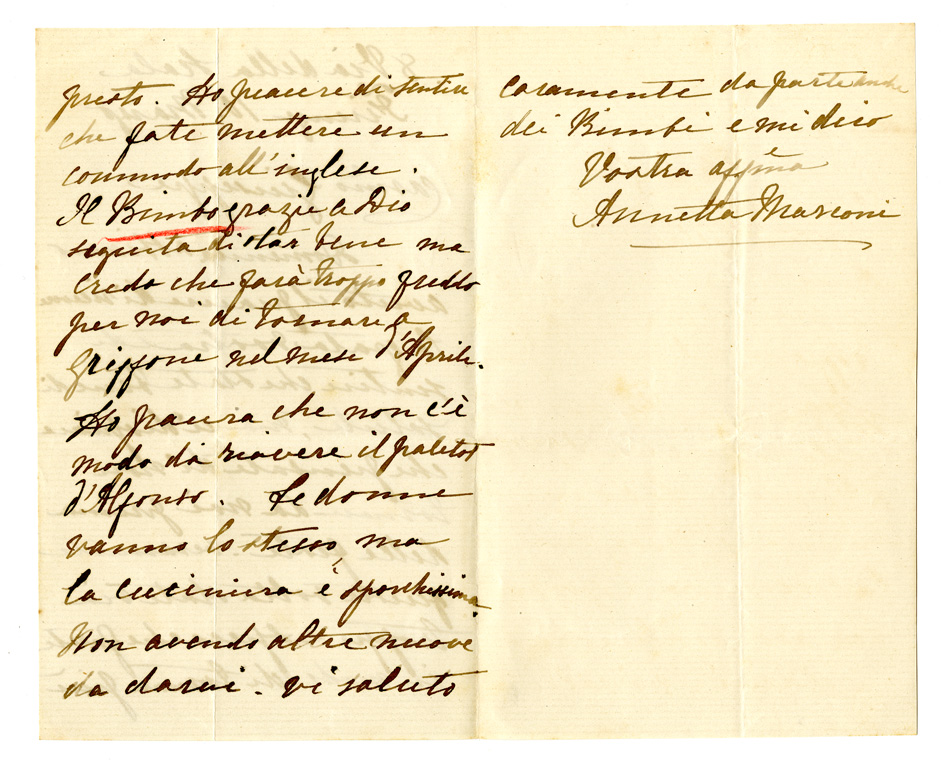 presto. Ho piacere di sentire
che fate mettere un
commodo all'inglese.
Il Bimbo grazie a Dio
seguita di star bene ma
credo che farà troppo freddo
per noi di tornare a
Griffone nel mese d'Aprile.
Ho paura che non c'è
modo da riavere il paletot
d'Alfonso. Le donne
vanno lo stesso, ma
la cuciniera è sporchissima.
Non avendo altre nuove
da darvi. vi saluto
caramente da parte anche
dei Bimbi e mi dico
Vostra affma
Annetta Marconi